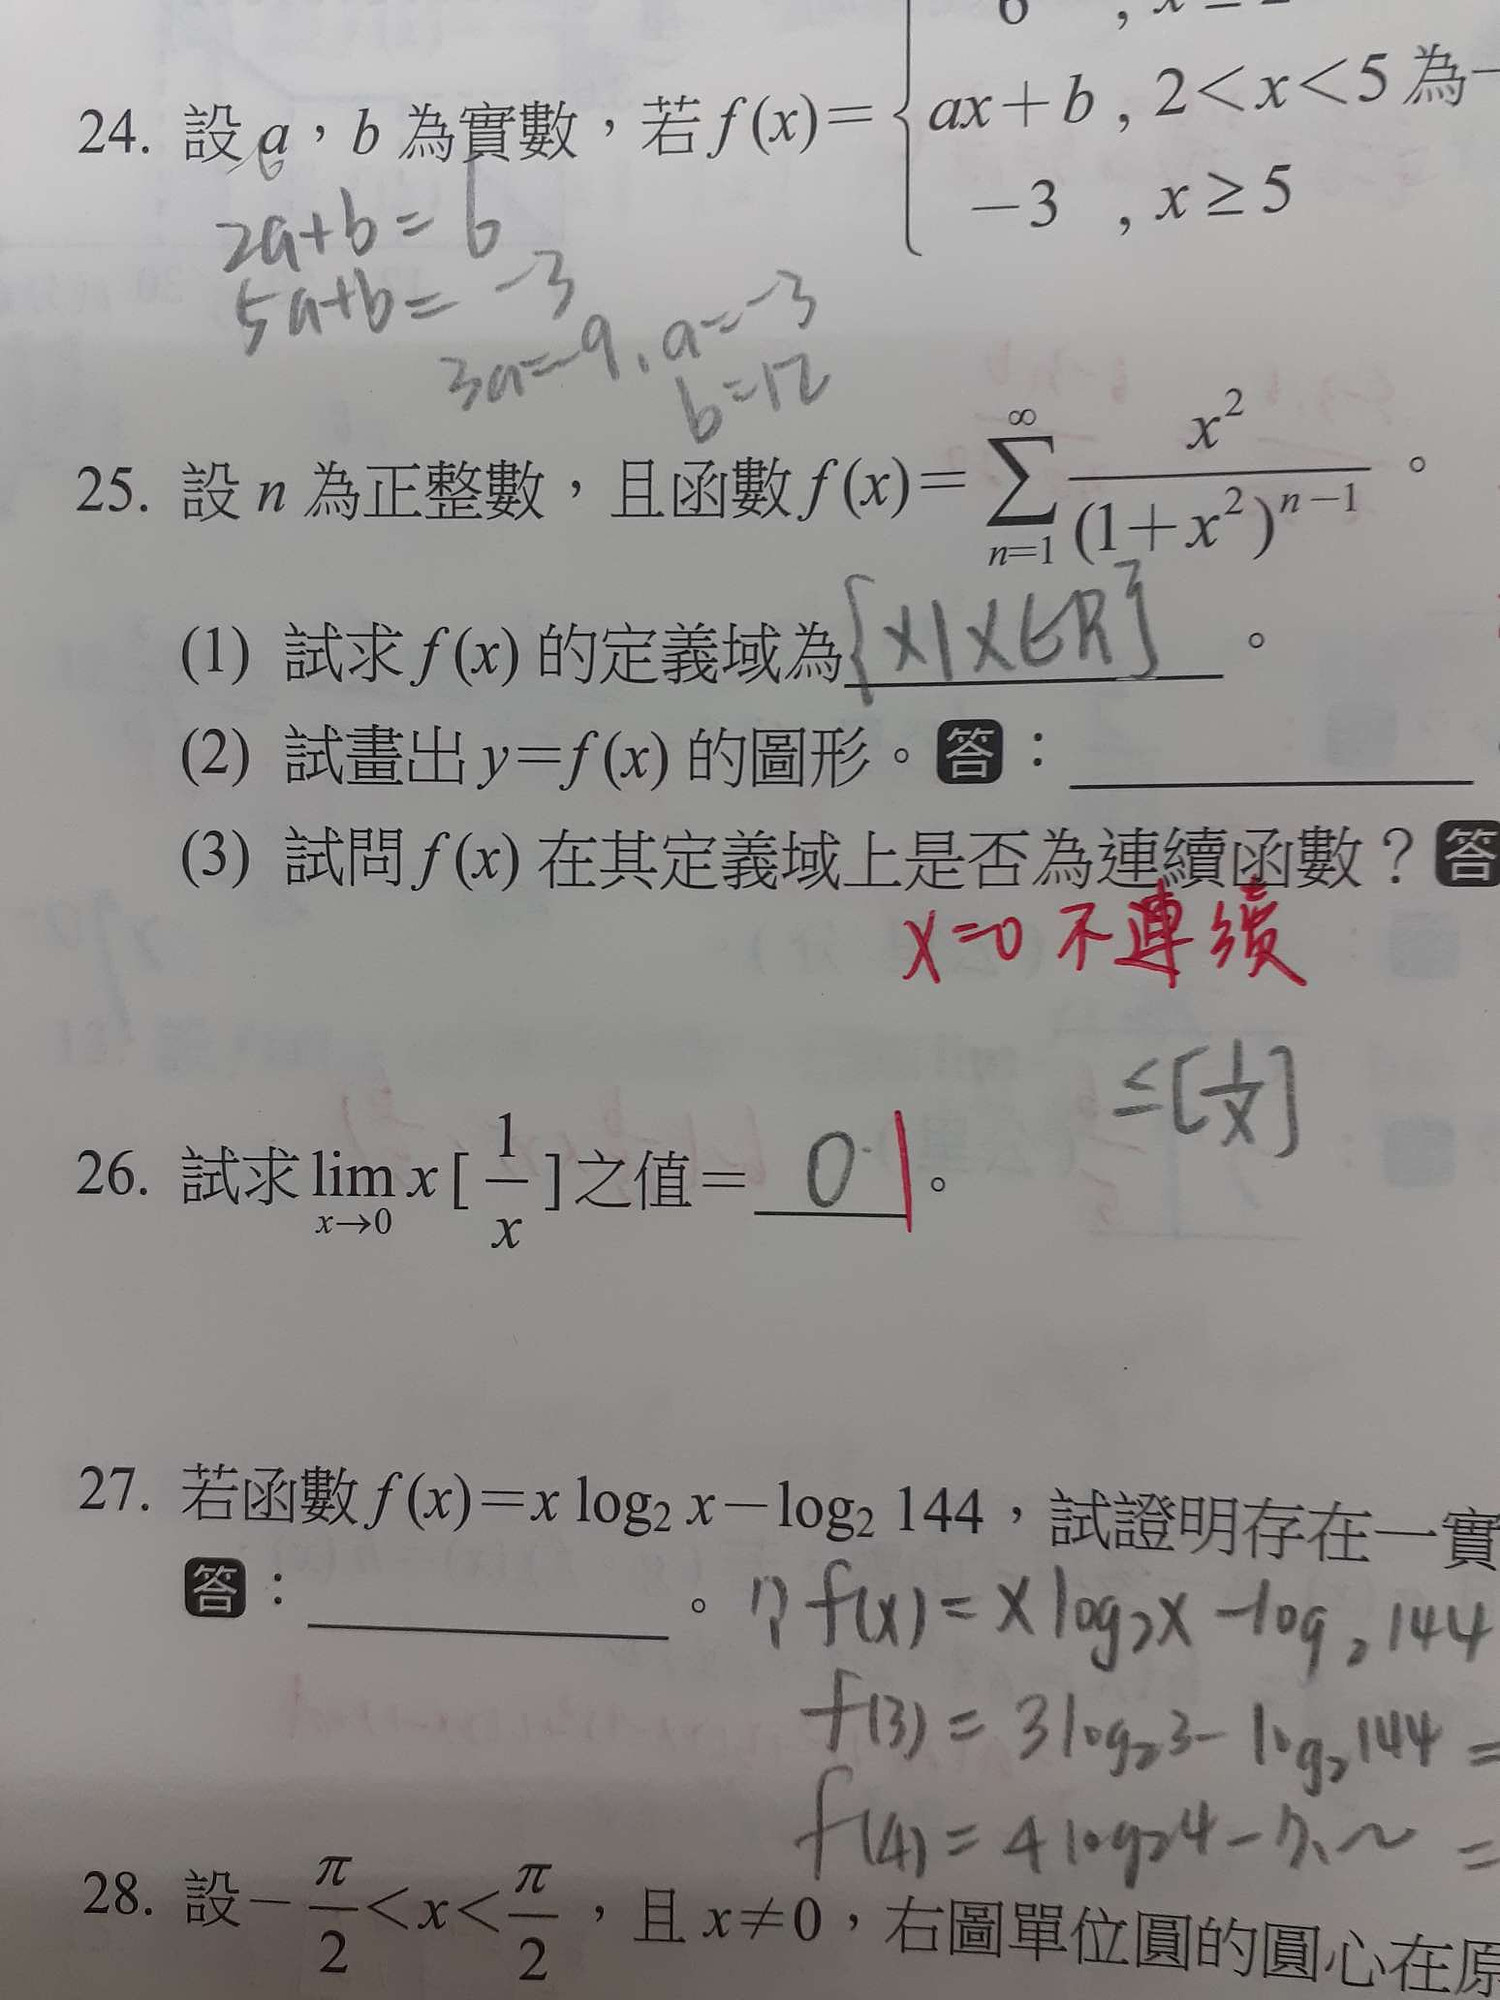 24. 設 a，b 為實數，若 f(x)= { 6 , x ≤ 2
ax+b , 2<x<5 為一
-3 , x≥5
2a+b=6
5a+b=-3
3a=-9, a=-3
b=12
25. 設 n 為正整數，且函數 f(x)=∑_{n=1}^{∞} x²/(1+x²)^{n-1}。
(1) 試求 f(x) 的定義域為{x|x∈R}。
(2) 試畫出 y=f(x) 的圖形。答：
(3) 試問 f(x) 在其定義域上是否為連續函數？答
x=0 不連續
≤[1/x]
26. 試求 lim_{x→0} x[1/x] 之值= 0 1。
27. 若函數 f(x)=x log₂ x-log₂ 144，試證明存在一實
答：。
f(x)=xlog₂x-log₂144
f(3)=3log₂3-log₂144=
f(4)=4log₂4-
28. 設-π/2<x<π/2，且 x≠0，右圖單位圓的圓心在原